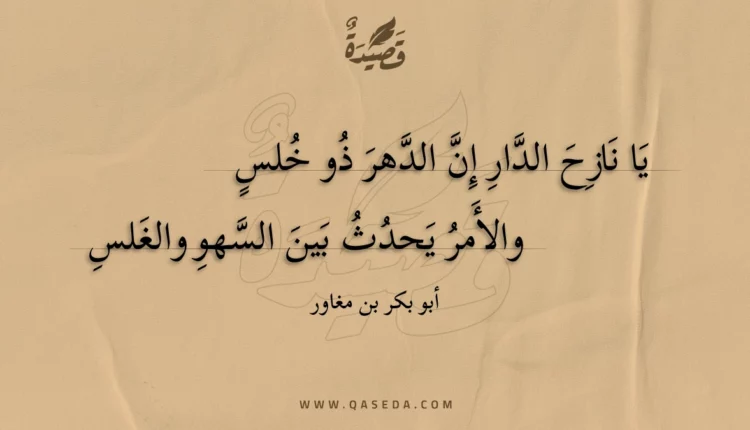 قَصِيدَةٌ
يَا نَازِحَ الدَّارِ إِنَّ الدَّهرَ ذُو خُلسٍ
والأَمرُ يَحدُثُ بَينَ السَّهوِ والغَلسِ
أبو بكر بن مغاور
WWW.QASEDA.COM